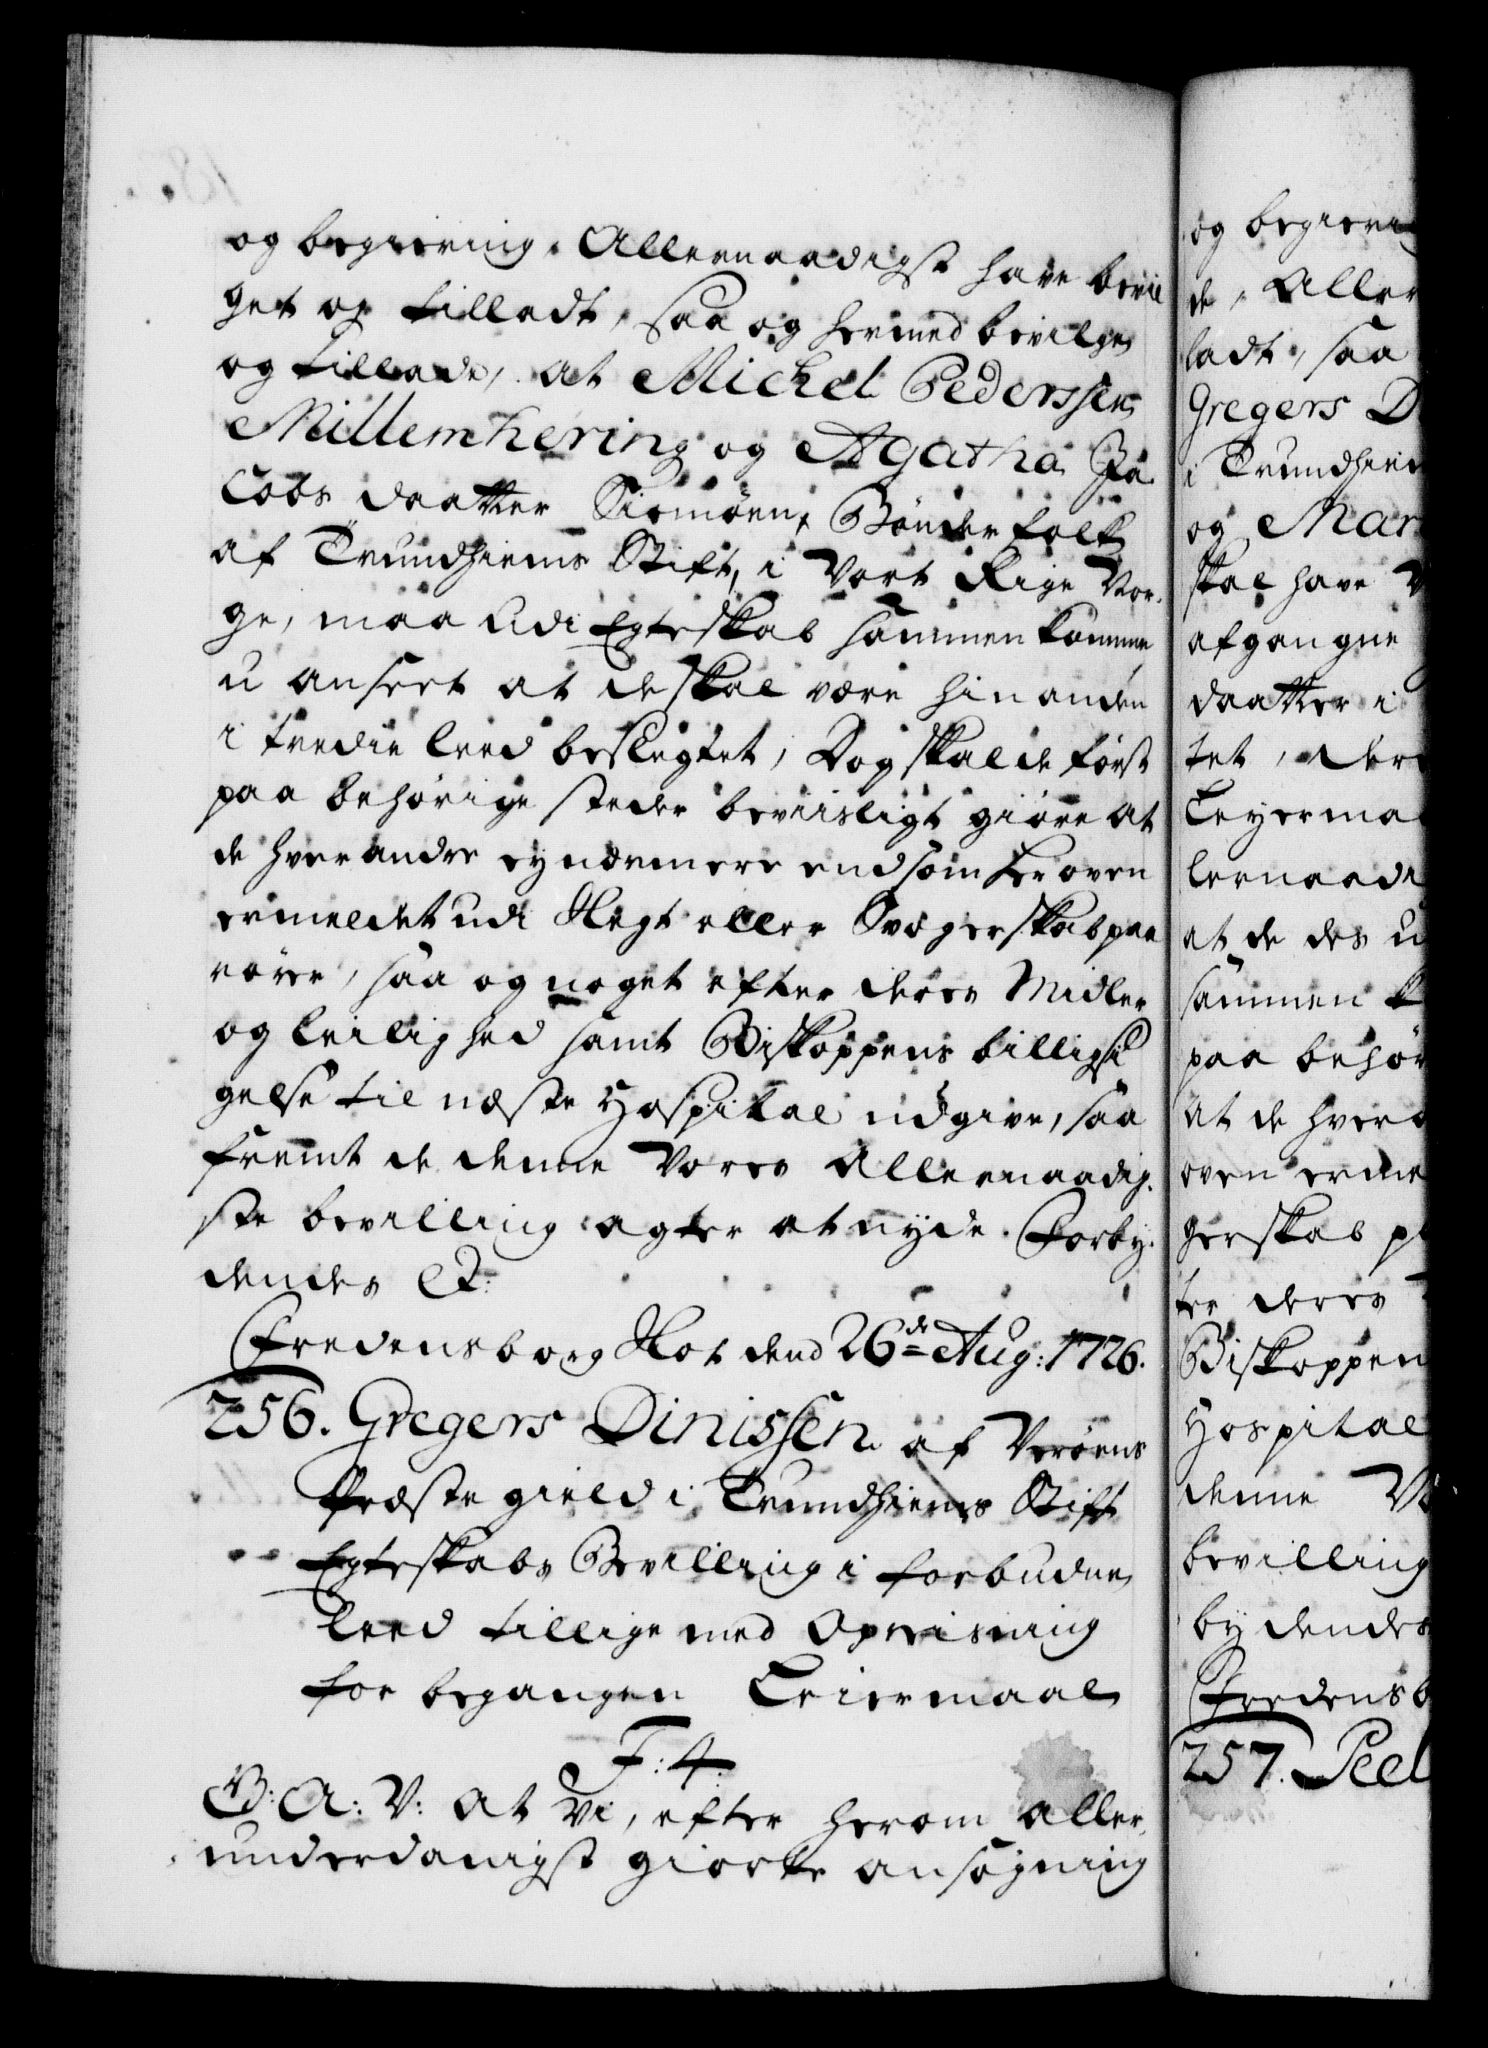 og begiering, Allernaadigst have bevil
get og tilladt, saa og hermed bevilge
og tillade, at Michel Pederssen
Millemhering og Agatha Ja
cobs daatter Siemøen, Bønder folk
af Trundhiems Stift, i Vort Rige Nor,
ge, maa udi Egteskab sammen komme
u anseet at de skal være hin anden
i tredie leed beslegtet, Dog skal de først
paa behørige steder beviisligt giøre at
de hver andre ey nærmere end som her oven
ermeldet udi Slegt eller Svogerskab paa
rører, saa og noget efter deres Midler
og leilighed samt Biskoppens billigsi
gelse til næste Hospital udgive, saa
fremt de denne Vores Allernaadig,
ste bevilling agter at nyde. Forby,
dendes &:
Fredensborg Slot dend 26de Aug: 1726.
256. Gregers Dinissen af Verøens
Præste gield i Trundhiems Stift
Egteskabs Bevilling i forbudne
leed tillige med Opreisning
for begangen Leiermaal
F: 4.
G: A: V: at Vi, efter herom aller,
underdanigst giorte ansøgning
og begieri
de, Aller
ladt, saa
Gregers D
i Trundhie
og Mar
skal have
afgangne
daatter i
tet, dere
Leyerma
lernaadi
at de des u
sammen k
paa behør
at de hvera
oven erme
gerskab p
ter deres
Biskoppen
Hospital
denne V
bevilling
by dendes
Fredensb
257. Peel